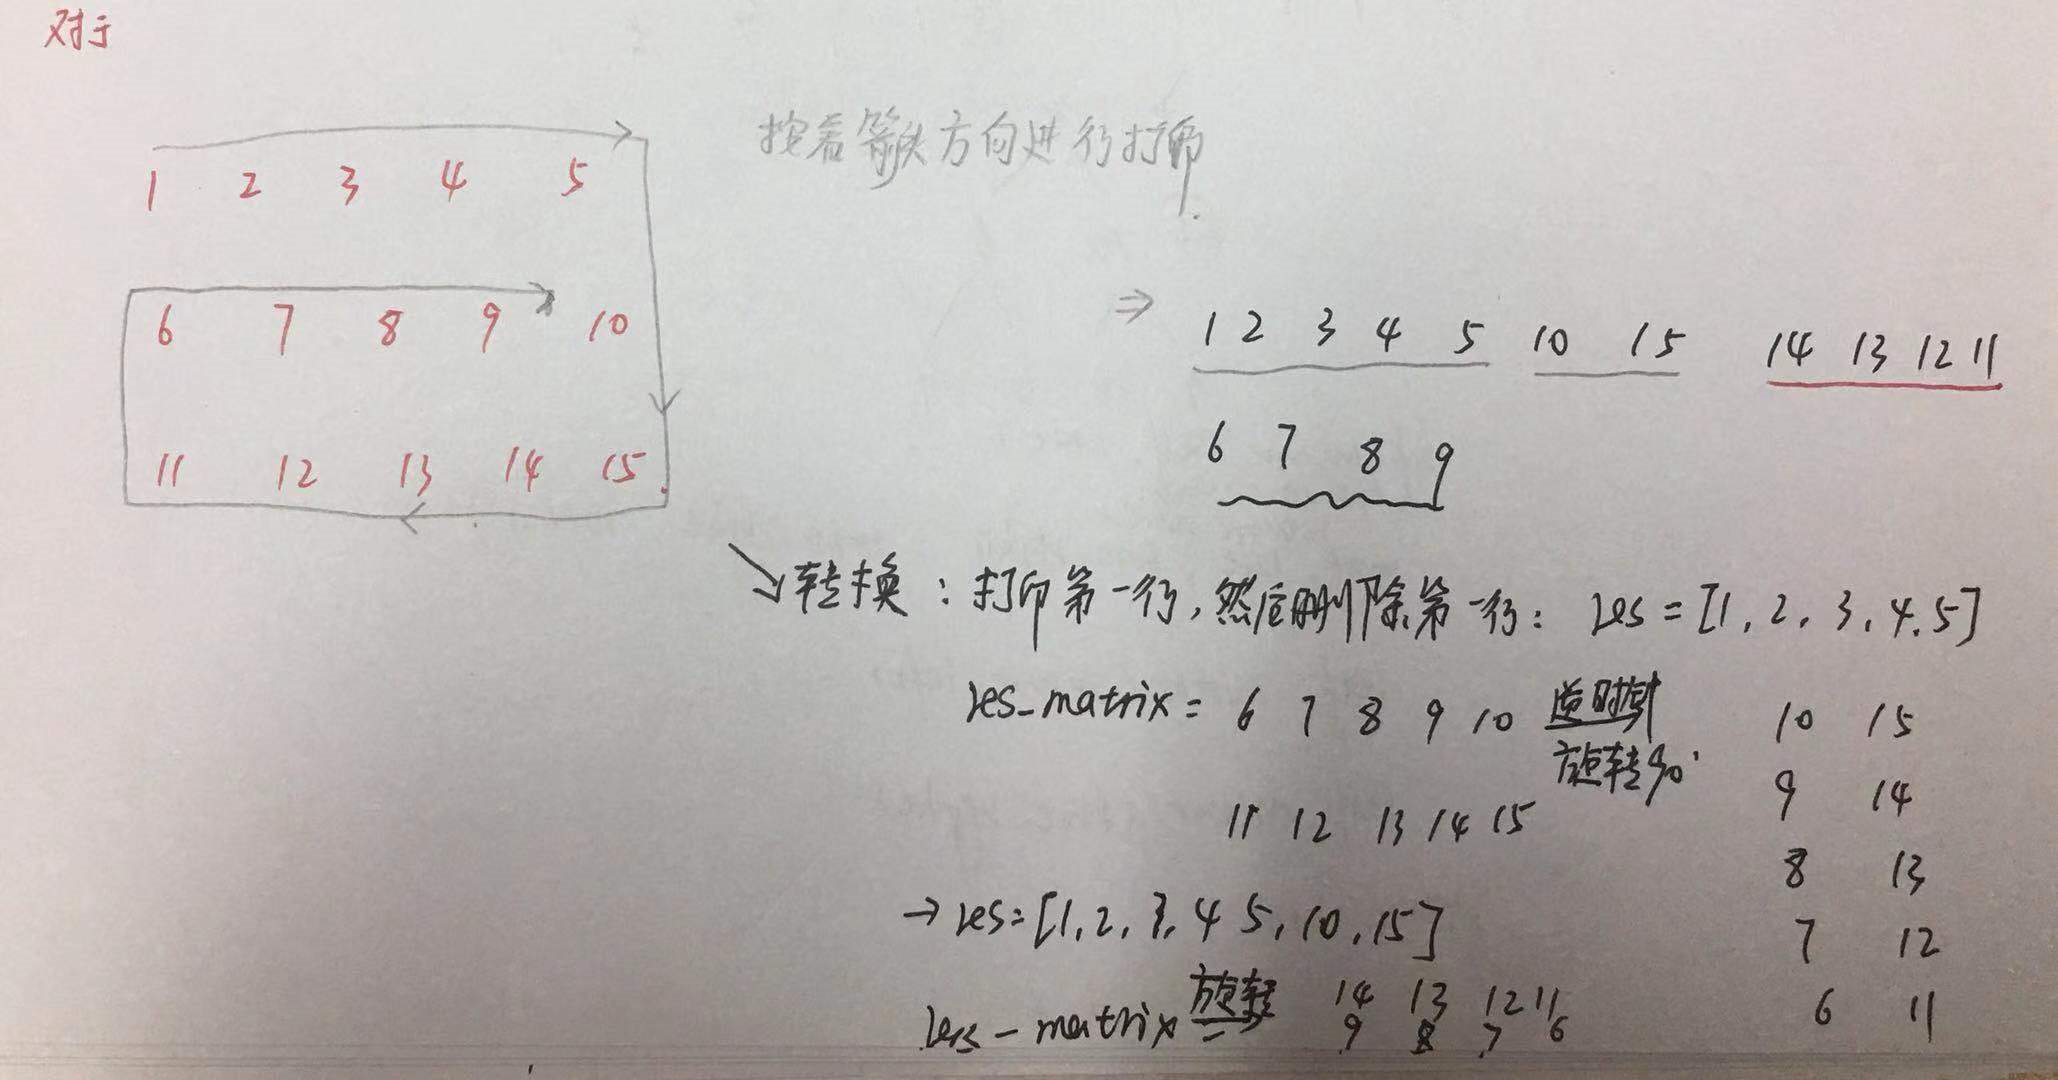 对于
按着箭头方向进行打印.
1 2 3 4 5
6 7 8 9 10
11 12 13 14 15
⇒ 1 2 3 4 5 10 15 14 13 12 11
6 7 8 9
转换：打印第一行，然后删除第一行： res = [1, 2, 3, 4, 5]
res_matrix = 6 7 8 9 10 逆时针 10 15
旋转90° 9 14
11 12 13 14 15
8 13
→ res = [1, 2, 3, 4 5, 10, 15] 7 12
res_matrix 旋转 = 14 13 12 11 6 11
9 8 7 6